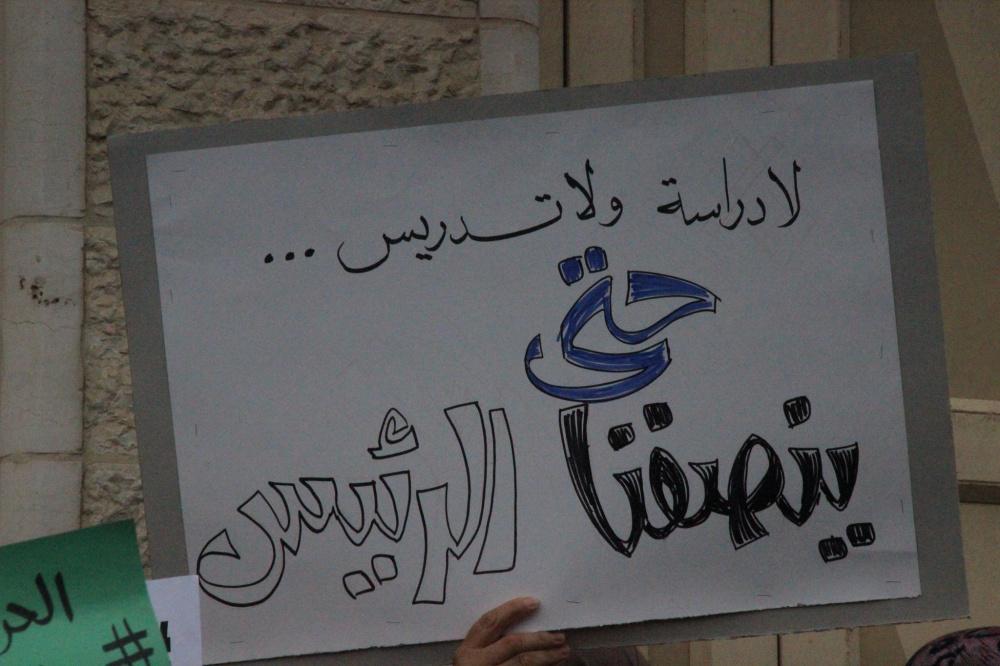 لا دراسة ولا تدريس ...
حتى
ينصفنا الرئيس
#